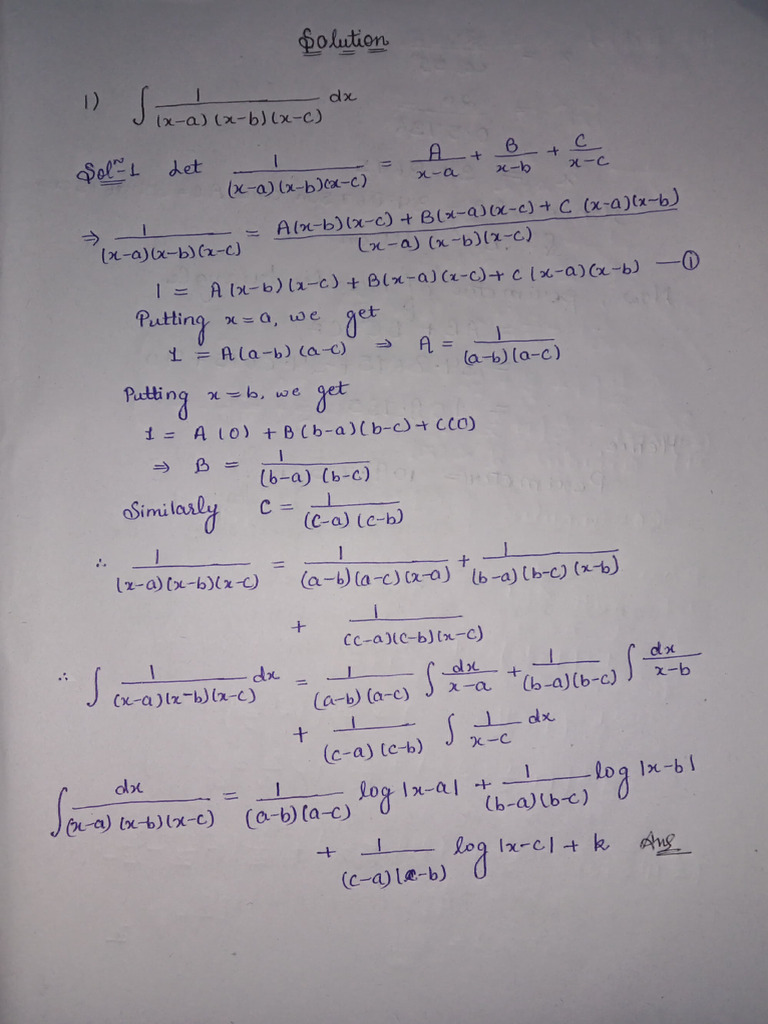 Solution
1) ∫ 1/((x-a)(x-b)(x-c)) dx
Solⁿ-1 Let 1/((x-a)(x-b)(x-c)) = A/(x-a) + B/(x-b) + C/(x-c)
⇒ 1/((x-a)(x-b)(x-c)) = (A(x-b)(x-c) + B(x-a)(x-c) + C (x-a)(x-b))/((x-a)(x-b)(x-c))
1 = A(x-b)(x-c) + B(x-a)(x-c) + C(x-a)(x-b) —①
Putting x=a, we get
1 = A(a-b)(a-c) ⇒ A = 1/((a-b)(a-c))
Putting x=b, we get
1 = A(0) + B(b-a)(b-c) + C(0)
⇒ B = 1/((b-a)(b-c))
Similarly C = 1/((c-a)(c-b))
∴ 1/((x-a)(x-b)(x-c)) = 1/((a-b)(a-c)(x-a)) + 1/((b-a)(b-c)(x-b))
+ 1/((c-a)(c-b)(x-c))
∴ ∫ 1/((x-a)(x-b)(x-c)) dx = 1/((a-b)(a-c)) ∫ dx/(x-a) + 1/((b-a)(b-c)) ∫ dx/(x-b)
+ 1/((c-a)(c-b)) ∫ 1/(x-c) dx
∫ dx/((x-a)(x-b)(x-c)) = 1/((a-b)(a-c)) log |x-a| + 1/((b-a)(b-c)) log |x-b|
+ 1/((c-a)(c-b)) log |x-c| + k Ans